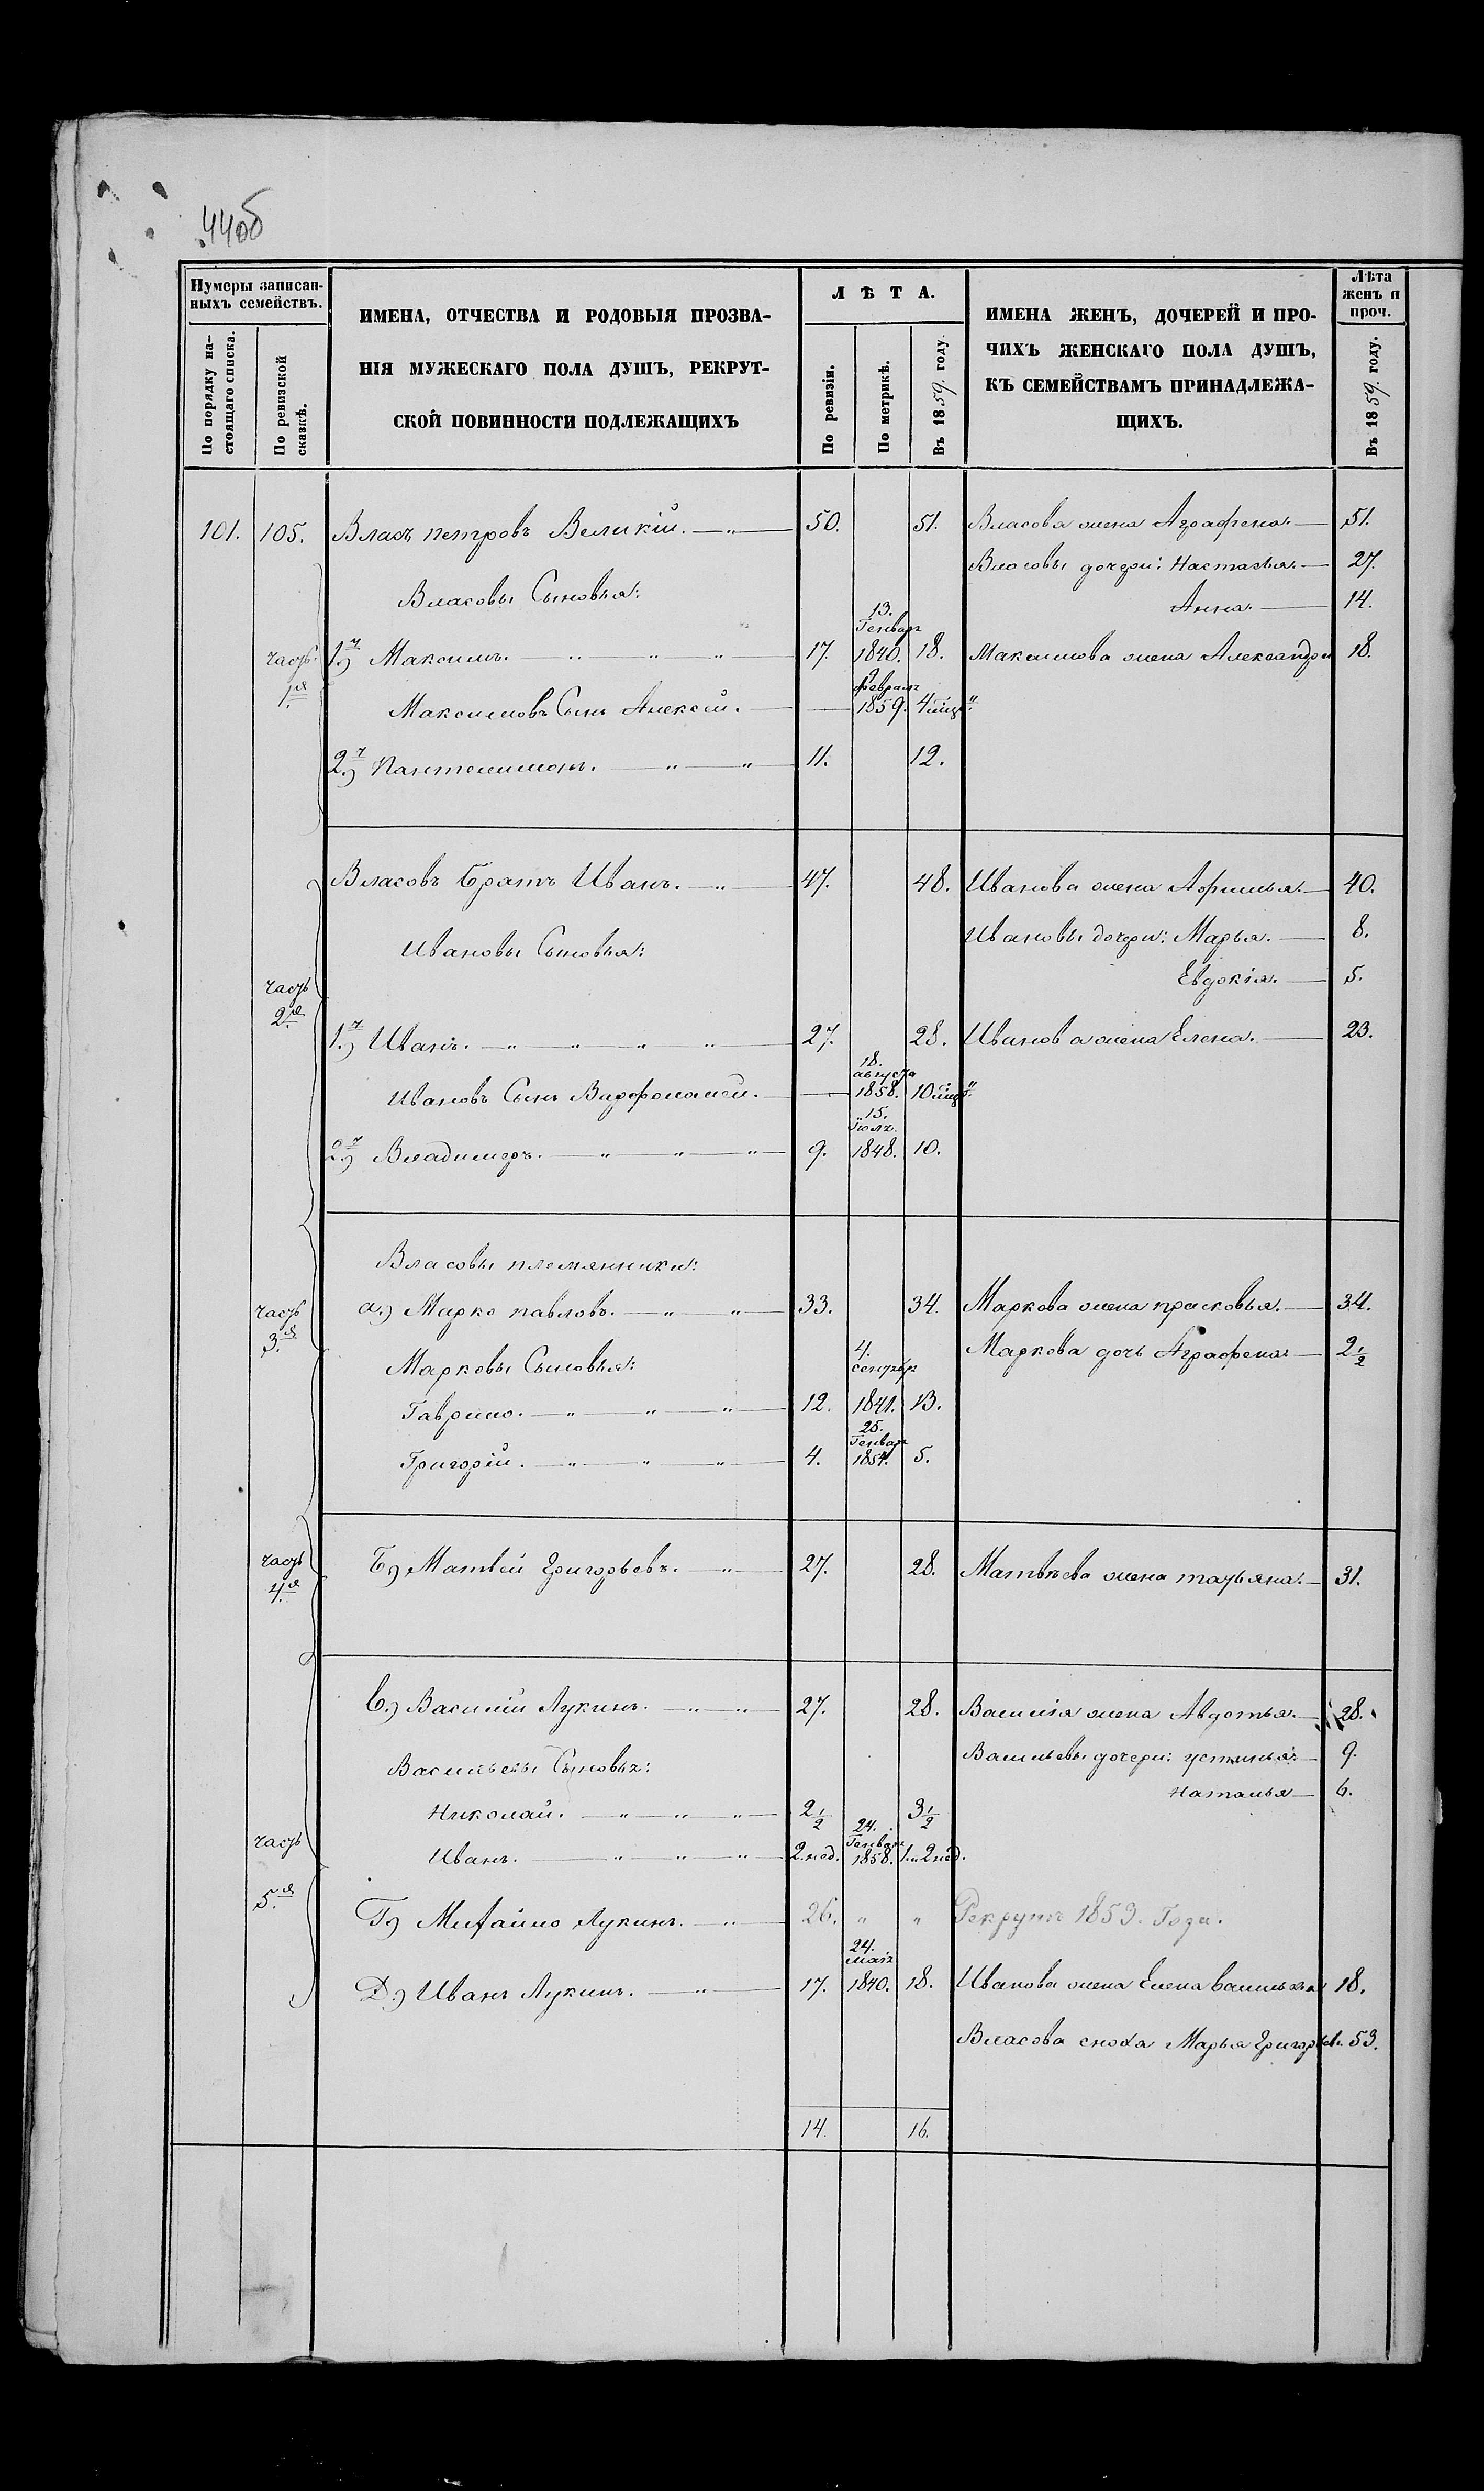 44об
Нумеры записан-
ныхъ семействъ.
По порядку на-
стоящаго списка.
По ревизской
сказкѣ.
ИМЕНА, ОТЧЕСТВА И РОДОВЫЯ ПРОЗВА-
НІЯ МУЖЕСКАГО ПОЛА ДУШЪ, РЕКРУТ-
СКОЙ ПОВИННОСТИ ПОДЛЕЖАЩИХЪ
ЛѢТА.
По ревизіи.
По метрикѣ.
Въ 1859. году.
ИМЕНА ЖЕНЪ, ДОЧЕРЕЙ И ПРО-
ЧИХЪ ЖЕНСКАГО ПОЛА ДУШЪ,
КЪ СЕМЕЙСТВАМЪ ПРИНАДЛЕЖА-
ЩИХЪ.
Лѣта
женъ и
проч.
Въ 1859. году.
101. 105. Власъ петровъ Великій. — " — 50. 51. Власова жена Аграфена. — 51.
Власовы дочери: Настасья. — 27.
Власовы Сыновья:
Анна. — 14.
13.
Генвар
часть 1.) Максимъ. — " — " — " — 17. 1840. 18. Максимова жена Александра 18.
1.я
9
февраля
Максимовъ Сынъ Алексѣй. — 1859. 4 мцъ "
2.) Пантелимонъ. — " — " — 11. 12.
Власовъ братъ Иванъ. — " — 47. 48. Иванова жена Афимья. — 40.
Ивановы дочери: Марья. — 8.
Ивановы Сыновья:
Евдокія. — 5.
часть
2.я
1.) Иванъ. — " — " — " — " — 27. 28. Иванова жена Елена. — 23.
18.
августа
Ивановъ Сынъ Варфоламей. — 1858. 10 мцъ "
15.
Іюля.
2.) Владимеръ. — " — " — " — 9. 1848. 10.
Власовы племянники:
часть а.) Марко павловъ. — " — " — 33. 34. Маркова жена прасковья. — 34.
3.я
Маркова дочь Аграфена — 2 1/2
Марковы Сыновья:
4.
сентяbr
Гаврило. — " — " — " — 12. 1841. 13.
25.
Генвар
Григорій. — " — " — " — 4. 1854. 5.
часть Б) Матвѣй Григорьевъ. — " — 27. 28. Матвѣева жена татьяна. — 31.
4.я
в.) Василій Лукинъ. — " — " — 27. 28. Василія жена Авдотья. — 28.
Васильевы дочери: устинья — 9.
Васильевы Сыновья:
Наталья — 6.
Николай. — " — " — " — 2 1/2 3 1/2
24.
Генваря
часть Иванъ. — " — " — " — 2.нед. 1858. 1. и 2 нед.
5.я
Г) Михайло Лукинъ. — " — 26. " " Рекрутъ 1853. Года.
24.
мая
Д) Иванъ Лукинъ. — " — 17. 1840. 18. Иванова жена Елена васильева 18.
Власова сноха Марья Григорьев. 53.
14. 16.